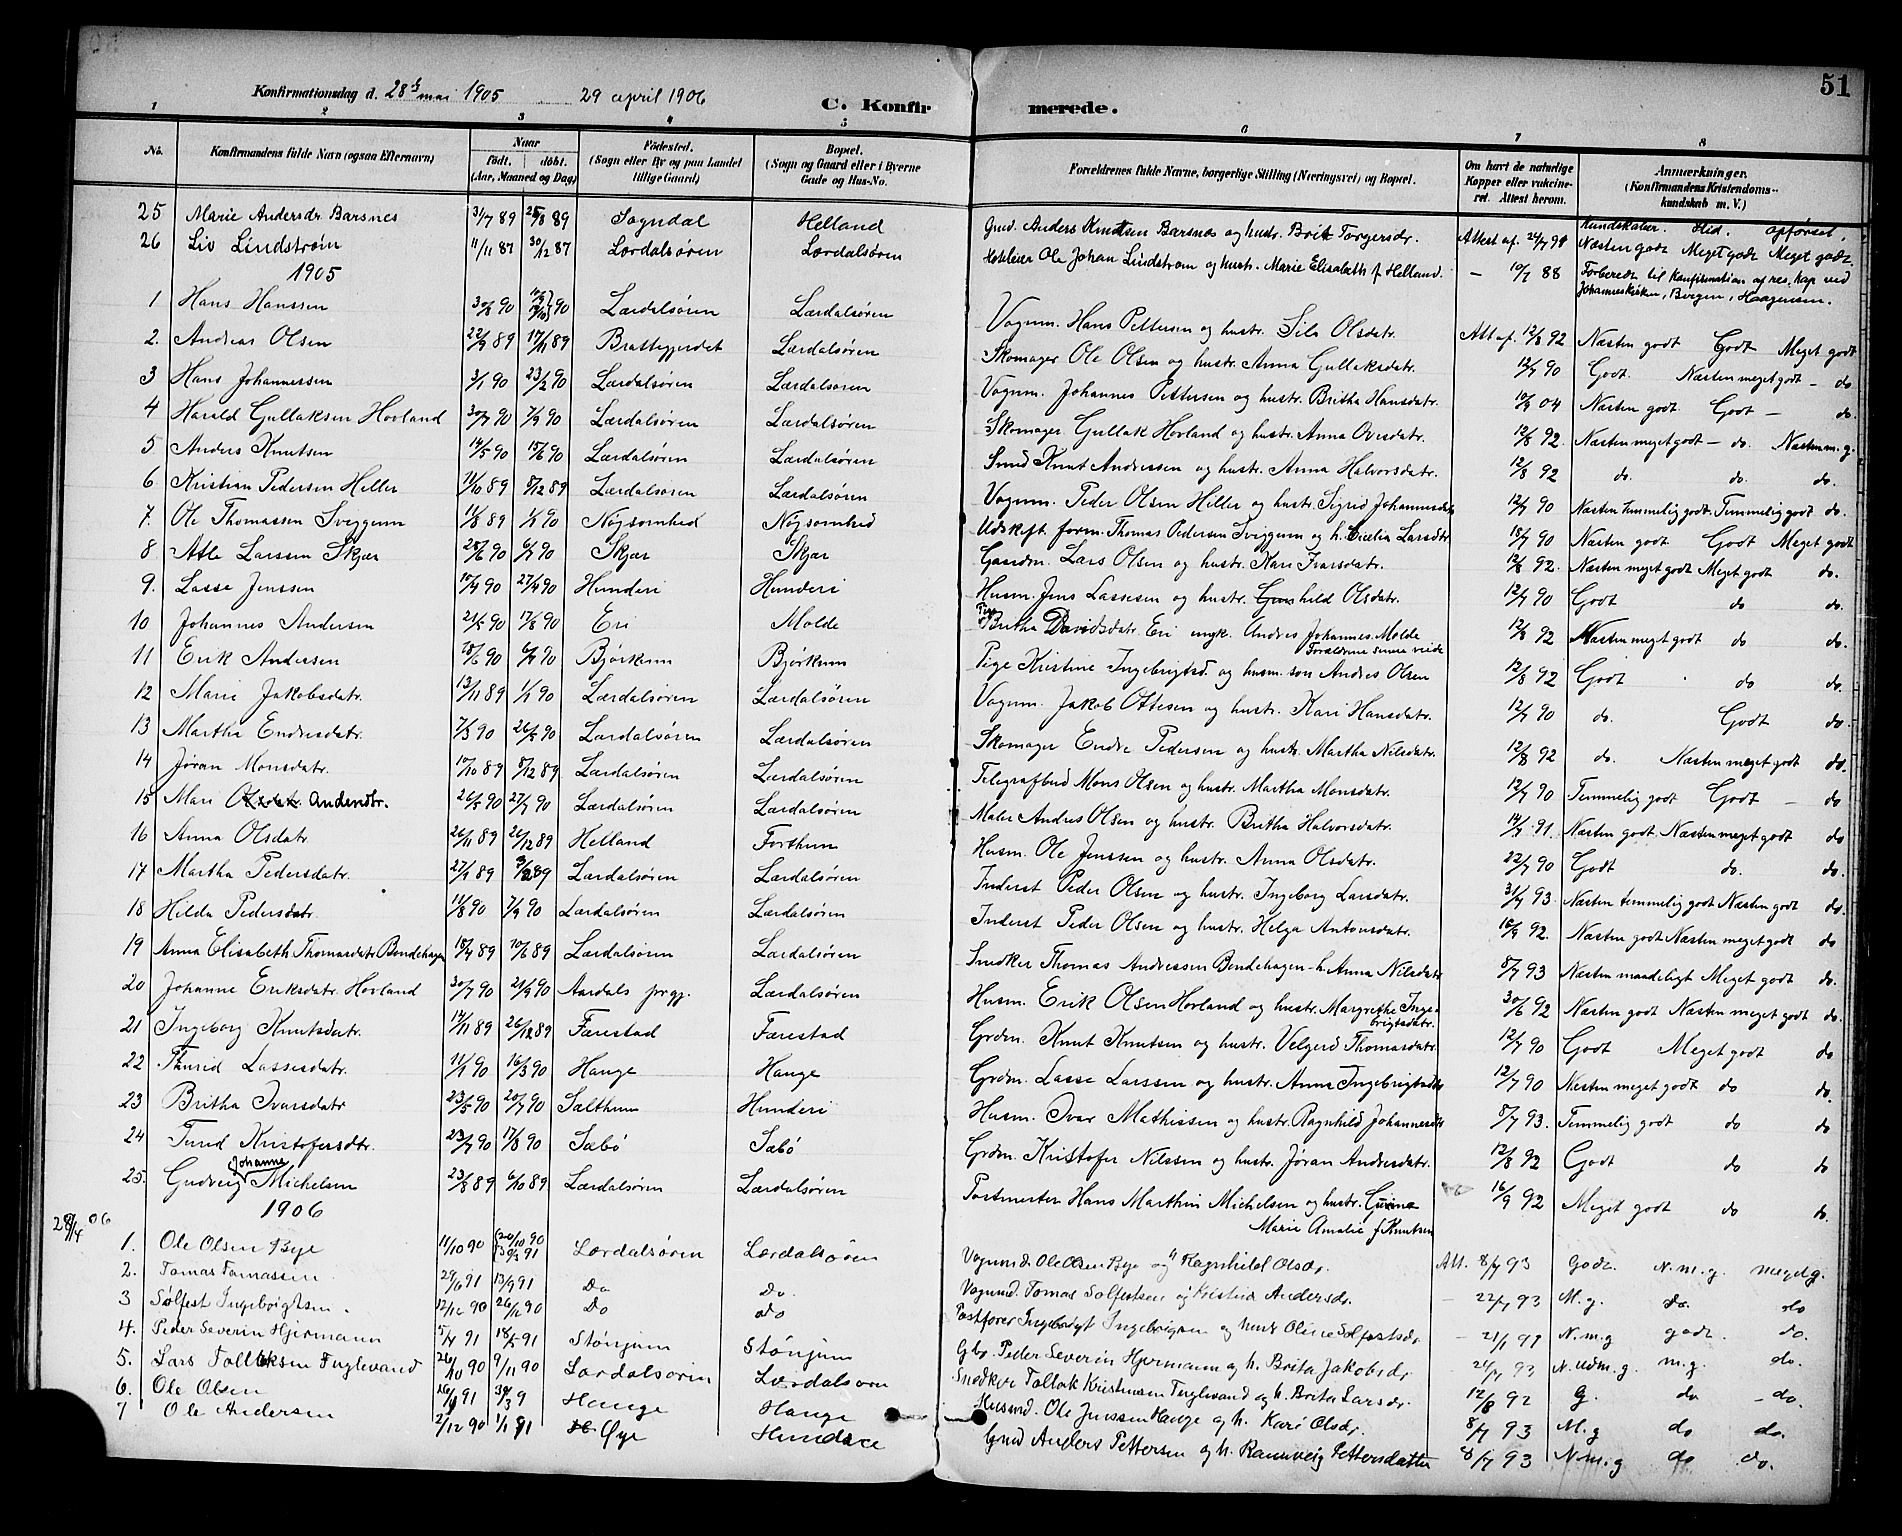 51
Konfirmationsdag d. 28de mai 1905 29 april 1906 C. Konfirmerede.
1 2 3 4 5 6 7 8
No. Konfirmandens fulde Navn (ogsaa Efternavn) Naar født. døbt. (Aar, Maaned og Dag) Fødested. (Sogn eller By og paa Landet tillige Gaard) Bopæl. (Sogn og Gaard eller i Byerne Gade og Hus-No. Forældrenes fulde Navne, borgerlige Stilling (Næringsvei) og Bopæl. Om havt de naturlige Kopper eller vakcineret. Attest herom. Anmærkninger. (Konfirmandens Kristendomskundskab m. V.)
Kundskaber. Flid. opførsel.
25 Marie Andersdr Barsnes 3/7 89 25/8 89 Sogndal Helland Gmd. Anders Knutsen Barsnes og hustr. Brit Torgersdr. Attest af 24/7 91 Næsten godt Meget godt Meget godt.
26 Liv Lindstrøm 11/11 87 30/12 87 Lærdalsøren Lærdalsøren Hoteleier Ole Johan Lindstrøm og hustr. Marie Elisabeth f. Helland. — 10/7 88 Forberedt til konfirmation og res. kap ved Johanneskirken, Bergen, Haagensen.
1905
1 Hans Hanssen 30/8 90 90 Lærdalsøren Lærdalsøren Vognm. Hans Pettersen og hustr. Sils Olsdatr. Att af. 12/8 92 Næsten godt Godt Meget godt
2. Andreas Olsen 22/9 89 17/11 89 Brattegjerdet Lærdalsøren Skomager Ole Olsen og hustr. Anna Gullaksdatr. 12/7 90 Godt. Næsten meget godt — do
3 Hans Johannessen 3/1 90 23/2 90 Lærdalsøren Lærdalsøren Vognm. Johannes Pettersen og hustr. Britha Hansdatr. 10/9 04 Næsten godt Godt — do.
4 Harald Gullaksen Hovland 30/7 90 7/9 90 Lærdalsøren Lærdalsøren Skomager Gullak Hovland og hustr. Anna Ovisdatr. 12/8 92 Næsten meget godt — do. Næsten m. g.
5. Anders Knutsen 14/5 90 15/6 90 Lærdalsøren Lærdalsøren Smed Knut Andressen og hustr. Anna Halvorsdatr. 12/8 92 do. do. do.
6 Kristian Pedersen Heller 11/10 89 8/12 89 Lærdalsøren Lærdalsøren Vognm. Peder Olsen Heller og hustr. Sigrid Johannesdatr 12/7 90 Næsten temmelig godt. Temmelig godt do.
7. Ole Thomassen Sviggum 11/8 89 1/1 90 Nøgsomhed Nøgsomhed Udskift. form. Thomas Pedersen Sviggum og h. Cecilia Larsdtr 18/7 90 Næsten godt Godt Meget godt
8 Atle Larssen Skjær 25/6 90 6/7 90 Skjær Skjær Gaardm. Lars Olsen og hustr. Kari Ivarsdatr. 12/8 92. Næsten meget godt Meget godt do.
9. Lasse Jenssen 10/4 90 27/4 90 Hunderi Hunderi Husm. Jens Lassesen og hustr. Gunhild Olsdatr. 12/7 90 Godt do do.
10 Johannes Andersen 21/5 90 17/8 90 Eri Molde Pige Britha Davidsdatr. Eri ungk. Andres Johannes. Molde Forældrene senere viede 12/8 92 Næsten meget godt do do.
11 Erik Andersen 28/6 90 6/7 90 Bjørkum Bjørkum Pige Kristine Ingebrigtsd. og husm. søn Andres Olsen 12/8 92 Godt do do.
12 Mari Jakobsdatr. 13/11 89 1/1 90 Lærdalsøren Lærdalsøren Vognm. Jakob Ottesen og hustr. Kari Hansdatr. 12/7 90 do. Godt do.
13 Martha Endresdatr. 7/3 90 26/5 90 Lærdalsøren Lærdalsøren Skomager Endre Pedersen og hustr. Martha Nilsdatr. 12/8 92 do. Næsten meget godt do.
14 Jøran Monsdatr. 10/10 89 8/12 89 Lærdalsøren Lærdalsøren Telegrafbud Mons Olsen og hustr. Martha Monsdatr. 12/7 90 Temmelig godt Godt — do
15 Mari Olsdatr Andersdtr. 26/5 90 27/7 90 Lærdalsøren Lærdalsøren Maler Andres Olsen og hustr. Britha Halvorsdatr. 14/7 91. Næsten godt Næsten meget godt do
16 Anna Olsdatr 26/11 89 26/12 89 Helland Forthun Husm. Ole Jenssen og hustr. Anna Olsdatr. 22/7 90 Godt do. do.
17 Martha Pedersdatr. 27/1 89 3/2 89 Lærdalsøren Lærdalsøren Inderst Peder Olsen og hustr. Ingeborg Larsdatr. 31/7 93. Næsten temmelig godt Næsten godt do.
18 Hilda Pedersdatr. 11/8 90 7/9 90 Lærdalsøren Lærdalsøren Inderst Peder Olsen og hustr. Helga Antonsdatr. 16/9 92. Næsten godt Næsten meget godt do
19 Anna Elisabeth Thomasdatr Bondehagen 18/7 89 10/8 89 Lærdalsøren Lærdalsøren Snedker Thomas Andressen Bondehagen h. Anna Nilsdatr 8/7 93 Næsten maadeligt Meget godt do.
20 Johanne Eriksdatr. Hovland 30/7 90 21/9 90 Aardals prgj. Lærdalsøren Husm. Erik Olsen Hovland og hustr. Margrethe Ingebrigtsdatr. 30/6 92 Næsten godt Næsten meget godt do.
21 Ingeborg Knutsdatr. 14/11 89 26/12 89 Færestad Færestad Grdm. Knut Knutsen og hustr. Velgerd Thomasdatr. 12/7 90 Godt Meget godt do
22 Thurid Lassesdatr. 11/1 90 16/3 90 Hauge Hauge Grdm. Lasse Larssen og hustr. Anna Ingebrigtsdtr 12/7 90 Næsten meget godt do do.
23 Britha Ivarsdatr 23/5 90 20/7 90 Salthun Hunderi Husm. Ivar Mathissen og hustr. Ragnhild Johannesdtr 8/7 93. Temmelig godt do do
24 Turid Kristofersdtr. 23/7 90 17/8 90 Sæbø Sæbø Grdm. Kristofer Nilssen og hustr. Jøran Andresdatr. 12/8 92 Godt do do
25. Gudveig Johanne Michelsen 23/8 89 6/10 89 Lærdalsøren Lærdalsøren Postmester Hans Marthin Michelsen og hustr. Marie Amalie f. Knutsen 16/9 92 Meget godt do do.
1906
29/4 06
1. Ole Olsen Bye 11/10 90 26/10 90 30/3 91 Lærdalsøren Lærdalsøren Vognmd. Ole Olsen Bye og Ragnhild Olsdr. Att. 8/7 93 Godt. N. m. g. meget g.
2. Tomas Tomassen 29/6 91 13/9 91 Do Do. Vognmd. Tomas Solfestsen og Kristid Andersdr. — 22/7 93 M. g. do. do
3 Solfest Ingebrigtsen. 12/12 90 26/12 90 Do do Postfører Ingebrigt Ingebrigtsen og hustr Oline Solfestsdr — 21/1 99 N. m. g godt. do.
4. Peder Severin Hjermann 5/4 91 18/5 91 Stønjum Stønjum Gbr. Peder Severin Hjermann og h. Brita Jakobsdr — 24/7 93 N. udm. g. m. g. do.
5. Lars Tollaksen Fuglevand 26/10 90 9/11 90 Lærdalsøren Lærdalsøren Snedker Tollak Kristensen Fuglevand og h. Brita Larsdr. 12/8 92 g. do — do.
6. Ole Olsen 91 9 Hauge Hauge Husmd. Ole Jenssen Hauge og h. Kari Olsdr. 8/7 93 M. g do do.
7 Ole Andersen 2/12 90 1/1 91 Øye Hundere Gmd Anders Pettersen og h. Rannveig Pettersdatter 8/7 93 N. m. g do do.